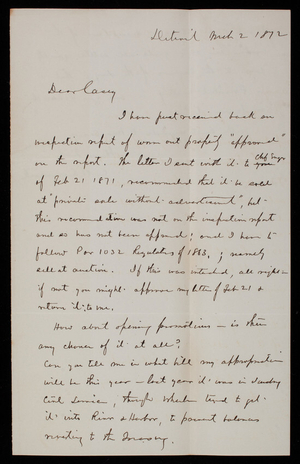 Detroit Mch 2 1872
Dear Casey
I have just received back an
inspection report of worn out property "approved"
on the report. The letter I sent with it to Chf Engr
of Feb 21 1871, recommended that it be sold
at "private sale without advertisement", but
this recommendation was not on the inspection report
and so has not been approved; and I have to
follow Par 1032 Regulations of 1863,; namely
sell at auction. If this was intended, all right —
if not you might approve my letter of Feb 21 &
return it to me.
How about opening promotions — is there
any chance of it at all?
Can you tell me in what bill my appropriation
will be this year — last year it was in Sundry
Civil Service, though Wheeler tried to get
it into River & Harbor, to prevent balances
reverting to the Treasury.